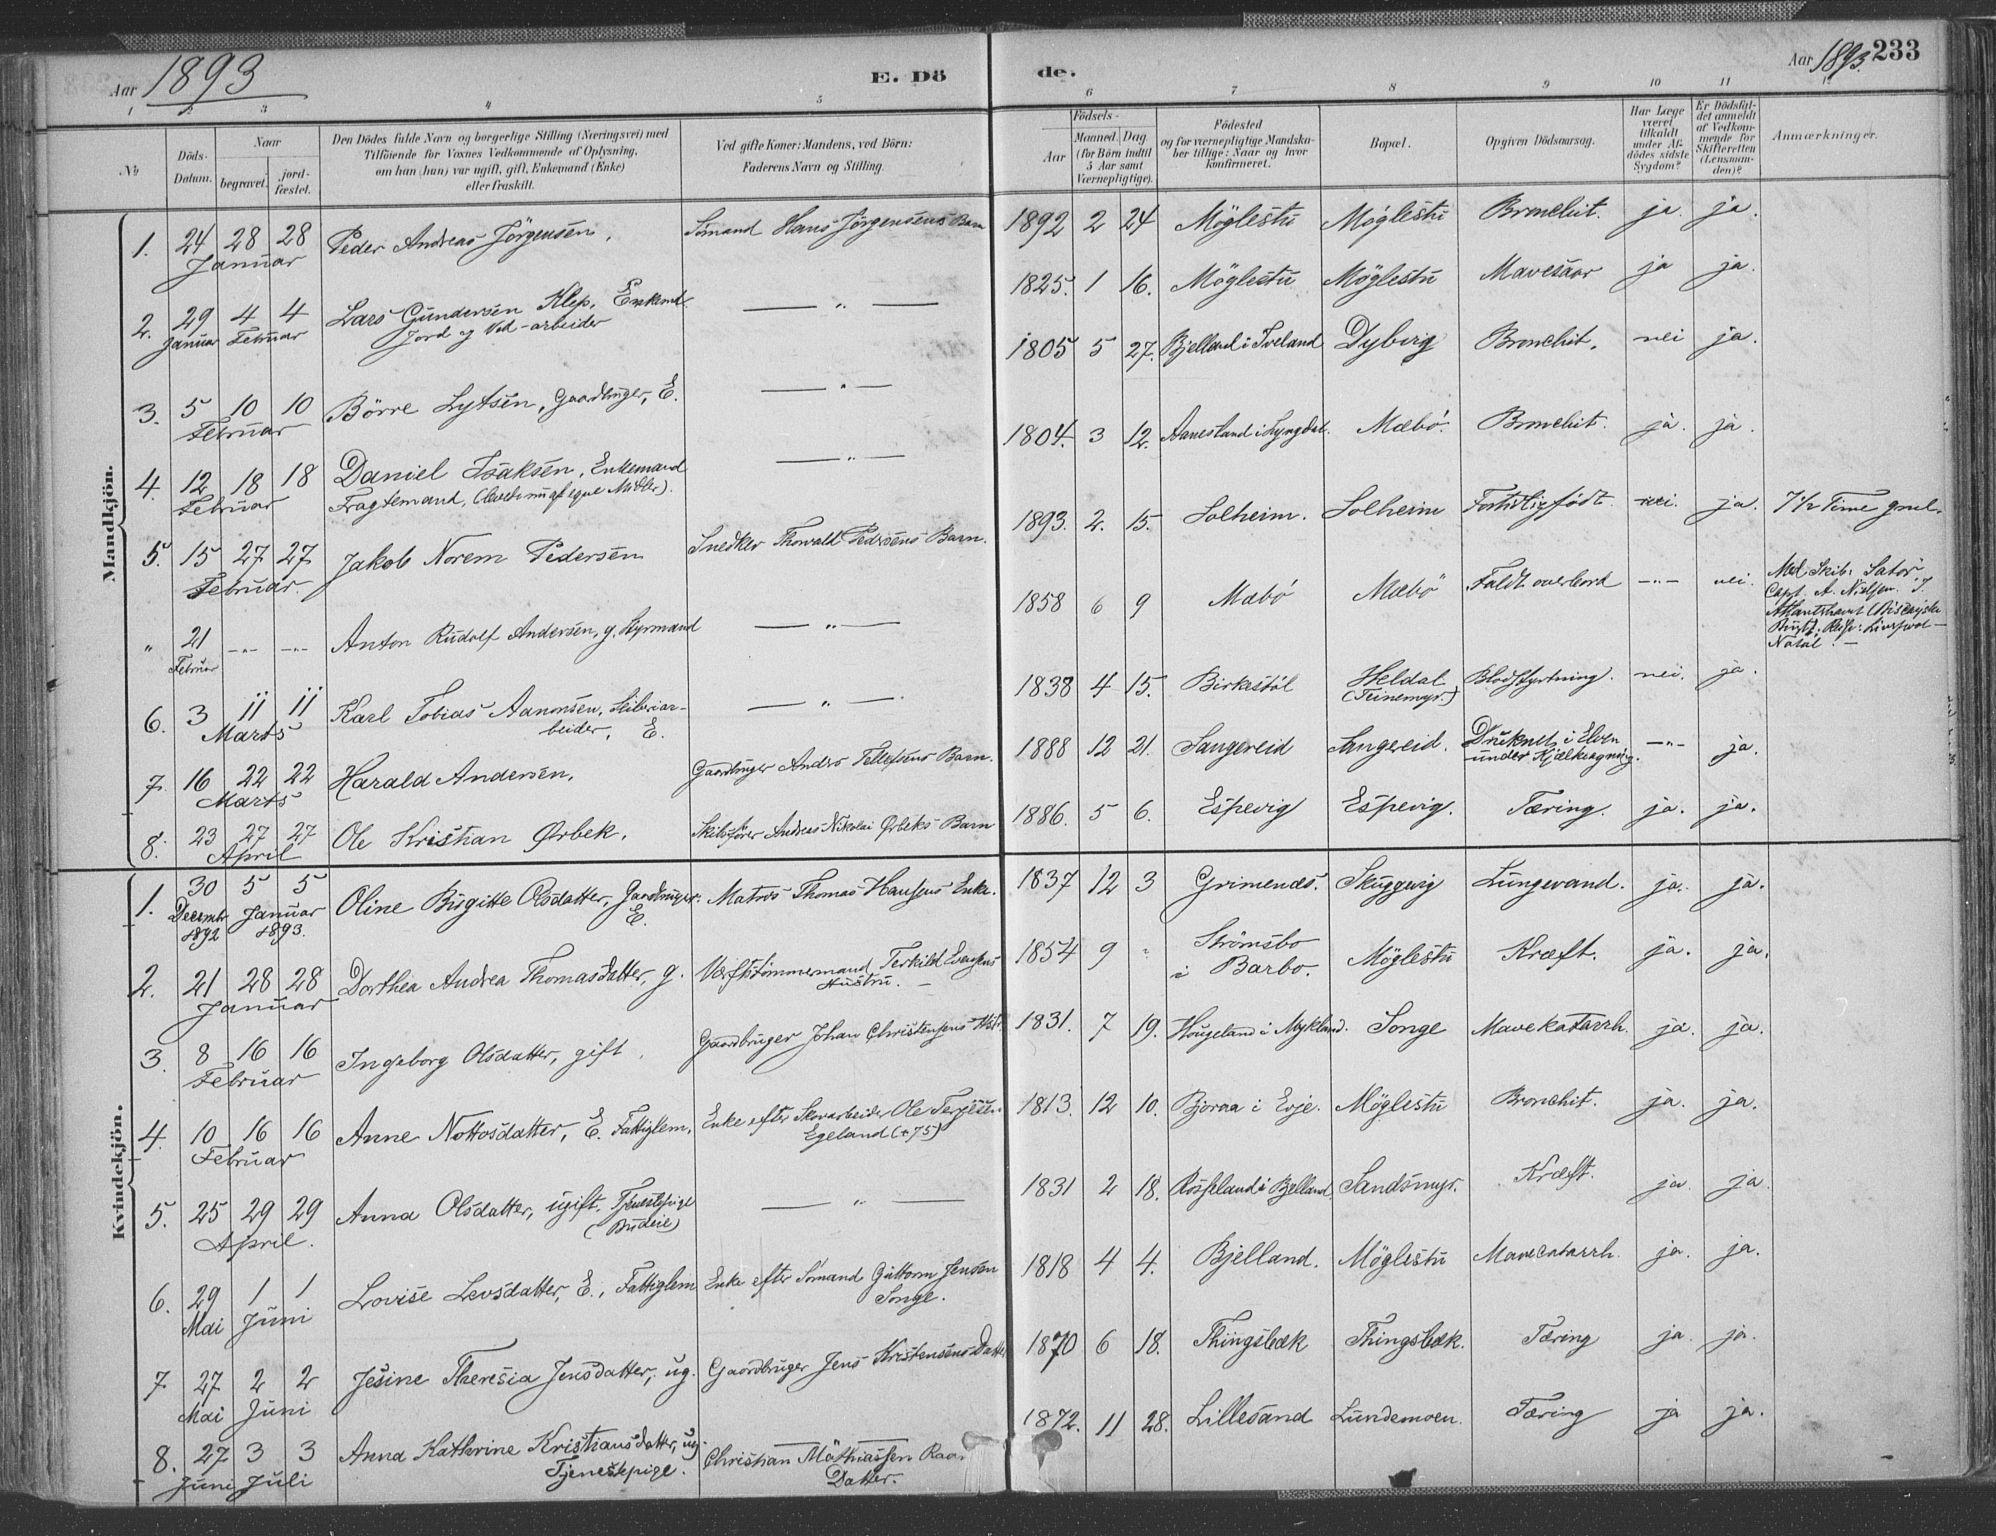 Aar 1893
E. Dö
de.
Aar 1893. 233
1 2 3 4 5 6 7 8 9 10 11 12
No
Döds-Datum.
Naar
begravet.
jord-fæstet.
Den Dödes fulde Navn og borgerlige Stilling (Næringsvei) med
Tilföiende for Voxnes Vedkommende af Oplysning,
om han (hun) var ugift, gift, Enkemand (Enke)
eller fraskilt.
Ved gifte Koner: Mandens, ved Börn:
Faderens Navn og Stilling.
Födsels-
Aar
Maaned. Dag.
(for Börn indtil
5 Aar samt
Værnepligtige).
Födested
og for værnepligtige Mandska-
ber tillige: Naar og hvor
konfirmeret.
Bopæl.
Opgiven Dödsaarsag.
Har Læge
været
tilkaldt
under Af-
dödes sidste
Sygdom?
Er Dödsfal-
det anmeldt
af Vedkom-
mende for
Skifteretten
(Lensman-
den)?
Anmærkninger.
Mandkjön.
1. 24 28 28 Januar Peder Andreas Jörgensen. Sömand Hans Jörgensens Barn 1892 2 24 Möglestu Möglestu Bronchit. ja. ja.
2. 29 Januar 4 4 Februar Lars Gundersen Klep, Enkemd Jord og Ved-arbeider — " — 1825. 1 16. Möglestu Möglestu Mavesaar ja ja.
3. 5 10 10 Februar Börre Lytsen, Gaardbruger, E. — " — 1805 5 27. Bjelland i Iveland Dybvig Bronchit. nei ja.
4. 12 18 18 Februar Daniel Isaksen, Enkemand Fragtemand, — " — 1804. 3 12. Aanesland i Lyngdal. Mæbö. Bronchit. ja. ja.
5. 15 27 27 Februar. Jakob Norem Pedersen Snedker Thorvald Pedersens Barn. 1893. 2. 15. Solheim. Solheim Fortidligfödt. nei. ja. 7 1/2 Time gml.
" 21 Februar -"- -"- Anton Rudolf Andersen, g. Styrmand — " — 1858 6 9 Mæbö Mæbö Faldt overbord -"- nei. Med Skib: Sator, Capt. A. Nielsen. I Atlantshavet (Biscayske Bugt). Reise: Liverpool — Natal. —
6. 3 11 11 Marts Karl Tobias Aanonsen, Skibsar-beider, E. — " — 1838 4 15. Birkestöl Heldal (Teinemyr.) Blodstyrtning. nei. ja.
7. 16 22 22 Marts Harald Andersen, Gaardbruger Andrs Tellefsens Barn. 1888 12 21. Sangereid Sangereid. Druknet i Elven under Kjælkeagning. -"- ja.
8. 23 27 27 April Ole Kristian Ørbek. Skibsförer Andreas Nikolai Ørbeks Barn 1886. 5 6. Espevig Espevig. Tæring. ja. ja.
Kvindekjön.
1. 30 Decembr 1892 5 5 Januar 1893. Oline Birgitte Olsdatter, Gaardbruger. E. Matros Thomas Hansens Enke. 1837 12 3 Grimenæs. Skuggevig Lungevand. ja. ja.
2. 21 28 28 Januar Dorthea Andrea Thomasdatter, g. Værftstömmermand Terkild Evensens Hustru. — 1854 9 " Strömsbo i Barbo. Möglestu Kræft. ja. ja.
3. 8 16 16 Februar Ingeborg Olsdatter, gift. Gaardbruger Johan Christensens Hstr. 1831. 7 19. Hougeland i Mykland. Songe Mavekatarrh. ja. ja.
4. 10 16 16 Februar Anne Nottosdatter, E. Fattiglem. Enke efter Skovarbeider Ole Terjesen Egeland (+75) 1813. 12 10. Bjoraa i Evje. Möglestu Bronchit. ja. ja.
5. 25 29 29 April. Anna Olsdatter, ugift. Tjenestepige (Budeie) — " — 1831 2 18. Rosseland i Bjelland Sandsmyr. Kræft. ja. ja.
6. 29 Mai 1 1 Juni Lovise Levsdatter, E., Fattiglem Enke efter Sömand Guttorm Jensen Songe. 1818 4 4. Bjelland. Möglestu Mavecatarrh. ja. ja.
7. 27 Mai 2 2 Juni Jesine Theresia Jensdatter, ug. Gaardbruger Jens Kristensens Datter 1870 6 18. Thingsbæk Thingsbæk. Tæring ja. ja.
8. 27 Juni 3 3 Juli Anna Kathrine Kristiansdatter, ug. Tjenestepige. Christian Mathiassen Datter. 1872. 11 28. Lillesand Lundemoen. Tæring ja ja.